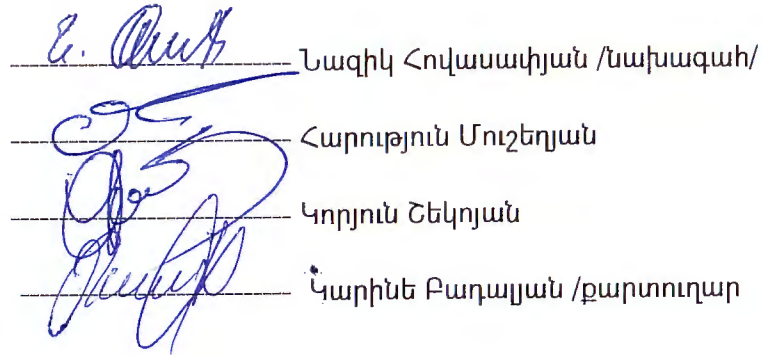 Նազիկ Հովասափյան /նախագահ/
Հարություն Մուշեղյան
Կորյուն Շեկոյան
Կարինե Բադալյան /քարտուղար